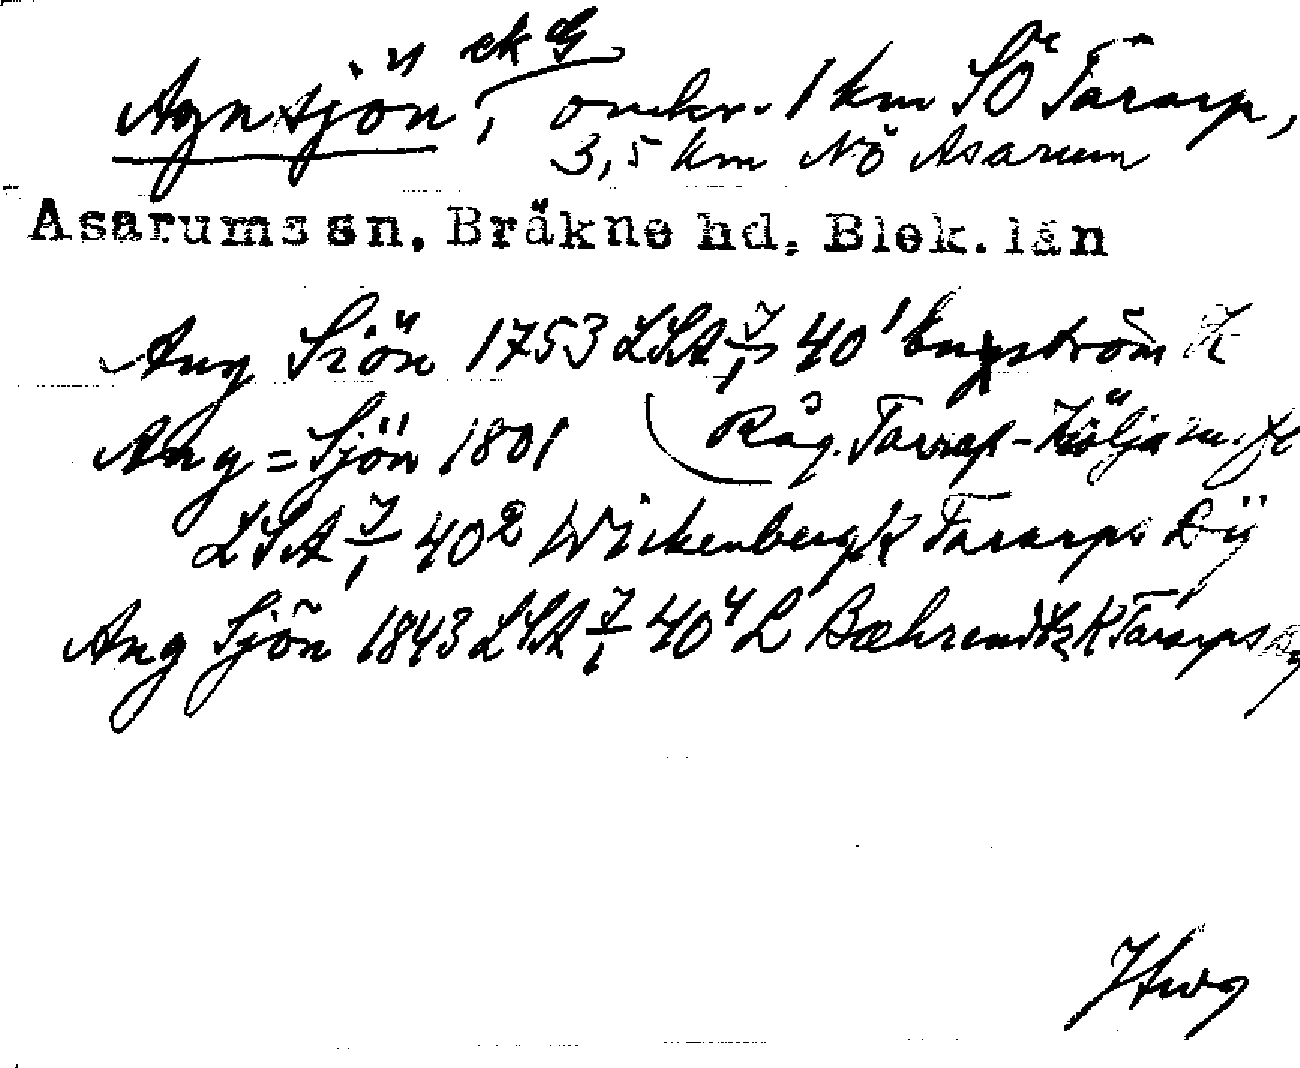 ek G
Agnsjön, omkr. 1 km SÖ Tararp,
3,5 km NÖ Asarum
Asarums sn, Bräkne hd, Blek. län
Ang Siön 1753 LSA 7/1 40¹ Engström K
Ang=Sjön 1801 Råg. Tararp-Köljam. fl
LSA 7/1 40² Wickenberg K Tararps By
Ang Sjön 1843 LSA 7/1 40⁴ L Bæhrendtz K Tararps By